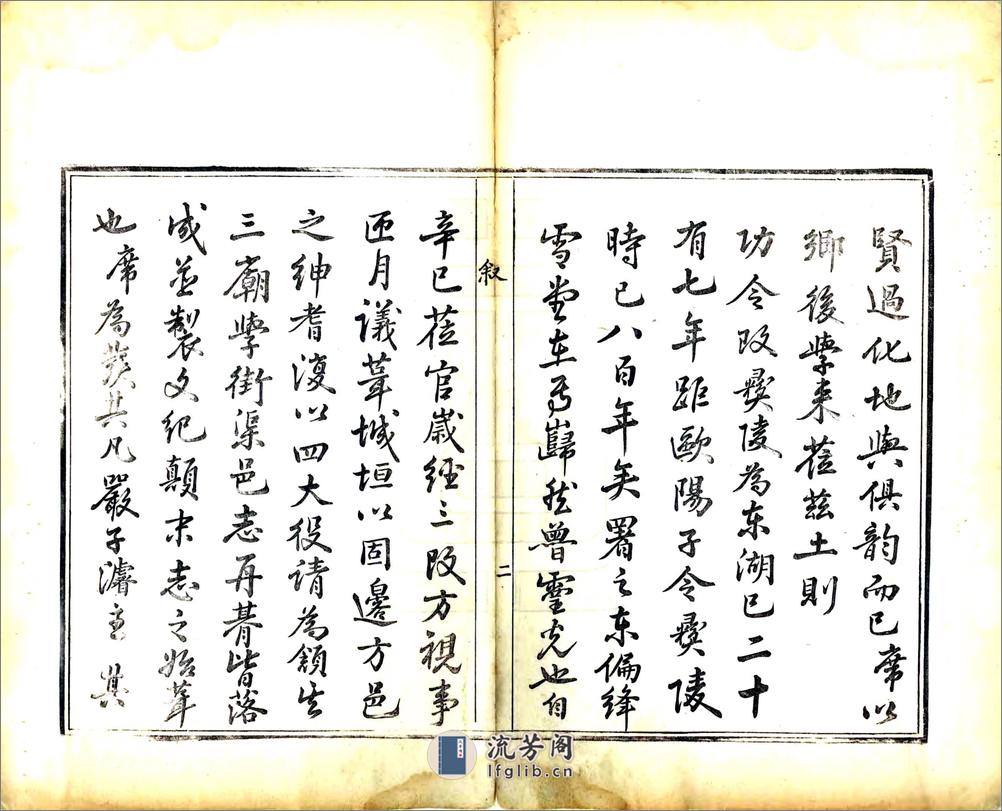 賢過化地與俱韵而已席以
鄉後學來蒞茲土則
功令改彝陵為東湖已二十
有七年距歐陽子令彝陵
時已八百年矣署之東偏絳
雪堂在焉巋然魯靈光也自
敘
二
辛巳蒞官歲經三改方視事
匝月議葺城垣以固邊方邑
之紳耆復以四大役請為領出
三廟學街渠邑志再朞皆落
成並製文紀顛末志之始葺
也席為發其凡嚴子濬主其
流芳阁
lfglib.cn